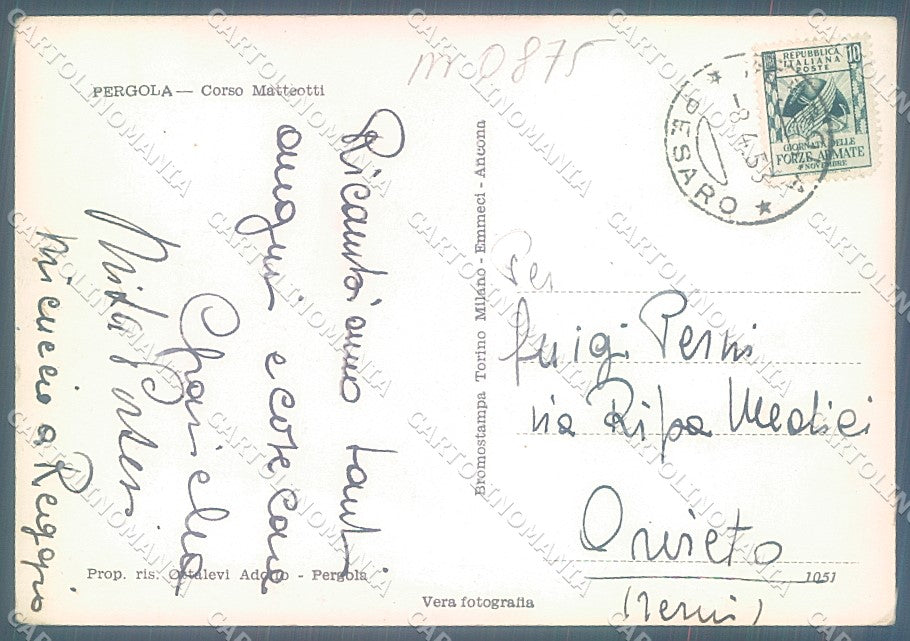 PERGOLA — Corso Matteotti
nr 0875
Ricambiamo tanti
auguri e cose care
Graziella
Mincuccio a Reggio
Prop. ris. Ottalevi Adolfo - Pergola
Vera fotografia
Bromostampa Torino Milano - Emmeci - Ancona
REPUBBLICA
ITALIANA
POSTE
10
GIORNATA DELLE
FORZE ARMATE
4 NOVEMBRE
-8.4.53
PESARO
Luigi Perni
via Ripa Medici
Orvieto
(Terni)
1051
CARTOLINOMANIA